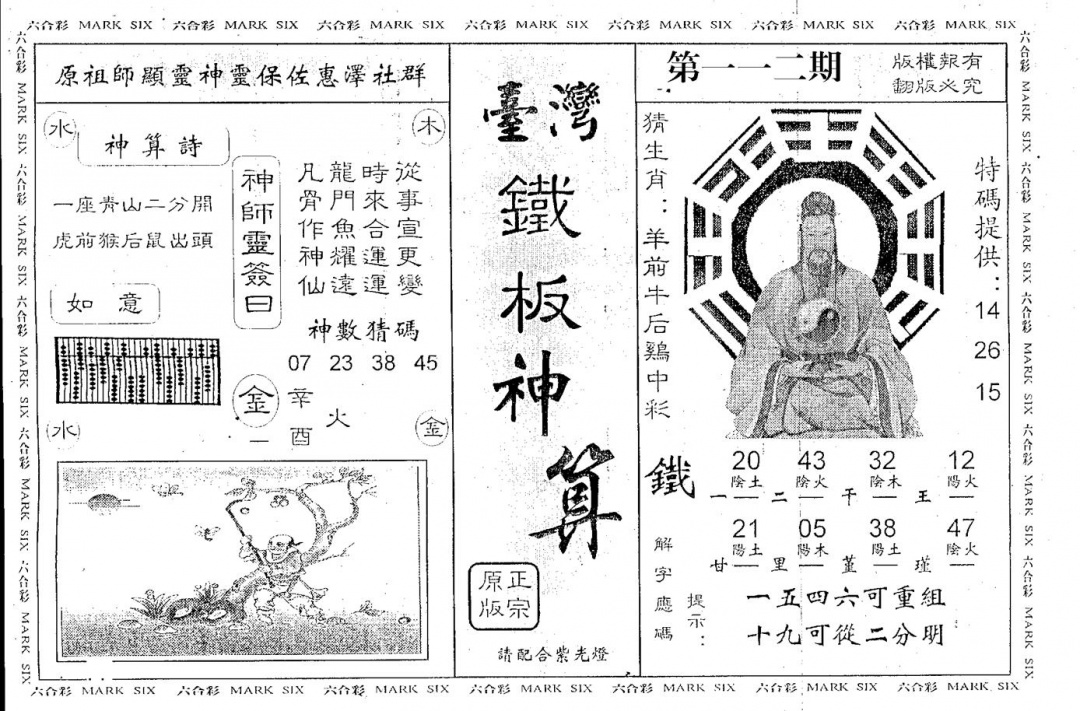 六合彩 MARK SIX 六合彩 MARK SIX 六合彩 MARK SIX 六合彩 MARK SIX 六合彩 MARK SIX 六合彩 MARK SIX 六合彩 MARK SIX
六合彩 MARK SIX 六合彩 MARK SIX 六合彩 MARK SIX 六合彩 MARK SIX 六合彩 MARK SIX
原祖師顯靈神靈保佐惠澤社群
水
木
神算詩
一座青山二分開
虎前猴后鼠出頭
如意
神師靈簽曰
從事宣更變
時來合運運
龍門魚耀遠
凡骨作神仙
神數猜碼
07 23 38 45
金
一
辛酉
火
水
金
臺灣
鐵板神算
正宗
原版
請配合紫光燈
第一一二期
版權報有
翻版必究
猜生肖：羊前牛后鷄中彩
特碼提供：
14
26
15
鐵
20 43 32 12
陰土 陰火 陰木 陽火
一 二 干 王
21 05 38 47
陽土 陽木 陽土 陰火
甘 里 堇 瑾
解字應碼
提示：
一五四六可重組
十九可從二分明
六合彩 MARK SIX 六合彩 MARK SIX 六合彩 MARK SIX 六合彩 MARK SIX 六合彩 MARK SIX
六合彩 MARK SIX 六合彩 MARK SIX 六合彩 MARK SIX 六合彩 MARK SIX 六合彩 MARK SIX 六合彩 MARK SIX 六合彩 MARK SIX